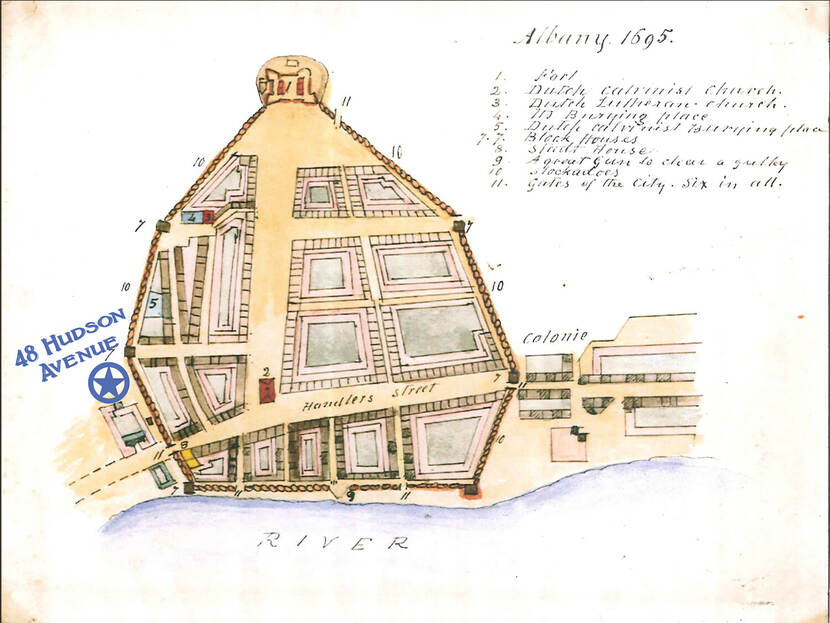 Albany. 1695.
1. Fort
2. Dutch calvinist church.
3. Dutch Lutheran church.
4. Its Burying place
5. Dutch calvinist Burying place
7.7. Block Houses
8. Stadt House
9 A great Gun to clear a gulley
10 Stockadoes
11. Gates of the City. Six in all.
1
11
10
10
7
4
3
7
10
10
5
48 HUDSON
AVENUE
7
Colonie
2
7
Handlers Street
11
10
8
11
7
11
9
11
RIVER